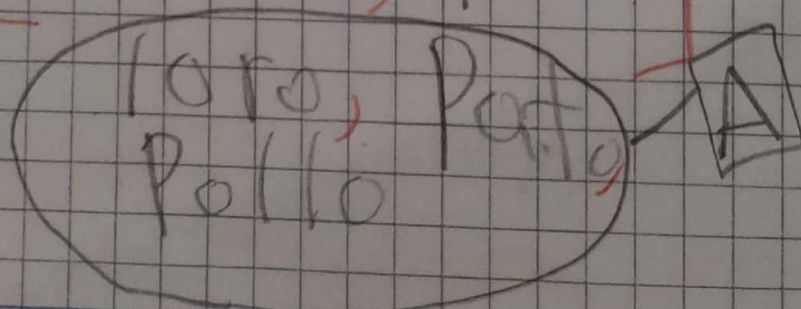 loro, Pato,
Pollo
A